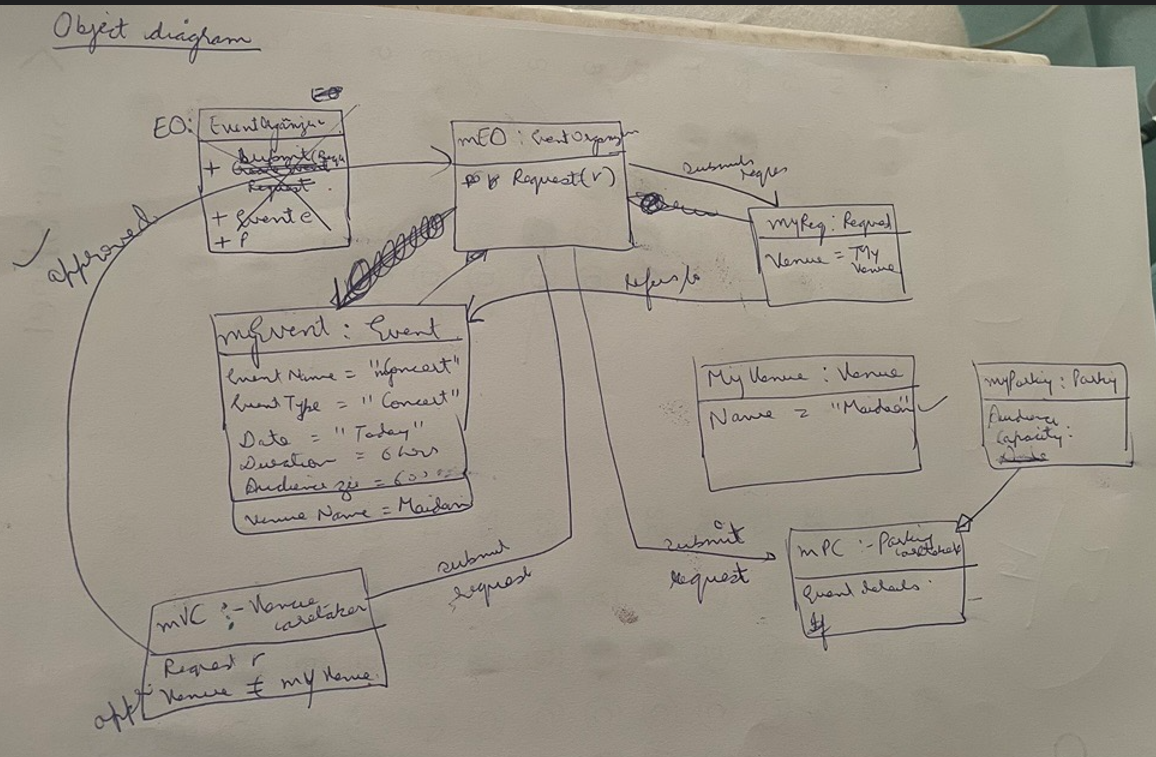 Object diagram
EO:
EventOrganizer
+ Submit(Requ
Create Event
Request.
+ Event e
+ P
mEO : EventOrganizer
Request(r)
submits
reques
myReq: Request
Venue = My
Venue
approved
refers to
myEvent : Event
Event Name = "Concert"
Event Type = "Concert"
Date = "Today"
Duration = 6 hrs
Audience size = 600
Venue Name = Maidan
My Venue : Venue
Name = "Maidan"
myParking : Parking
Audience
Capacity:
submit
request
submit
request
mPC :- Parking
caretaker
Event details.
If
mVC :- Venue
caretaker
Request r
Venue = my Venue
appr